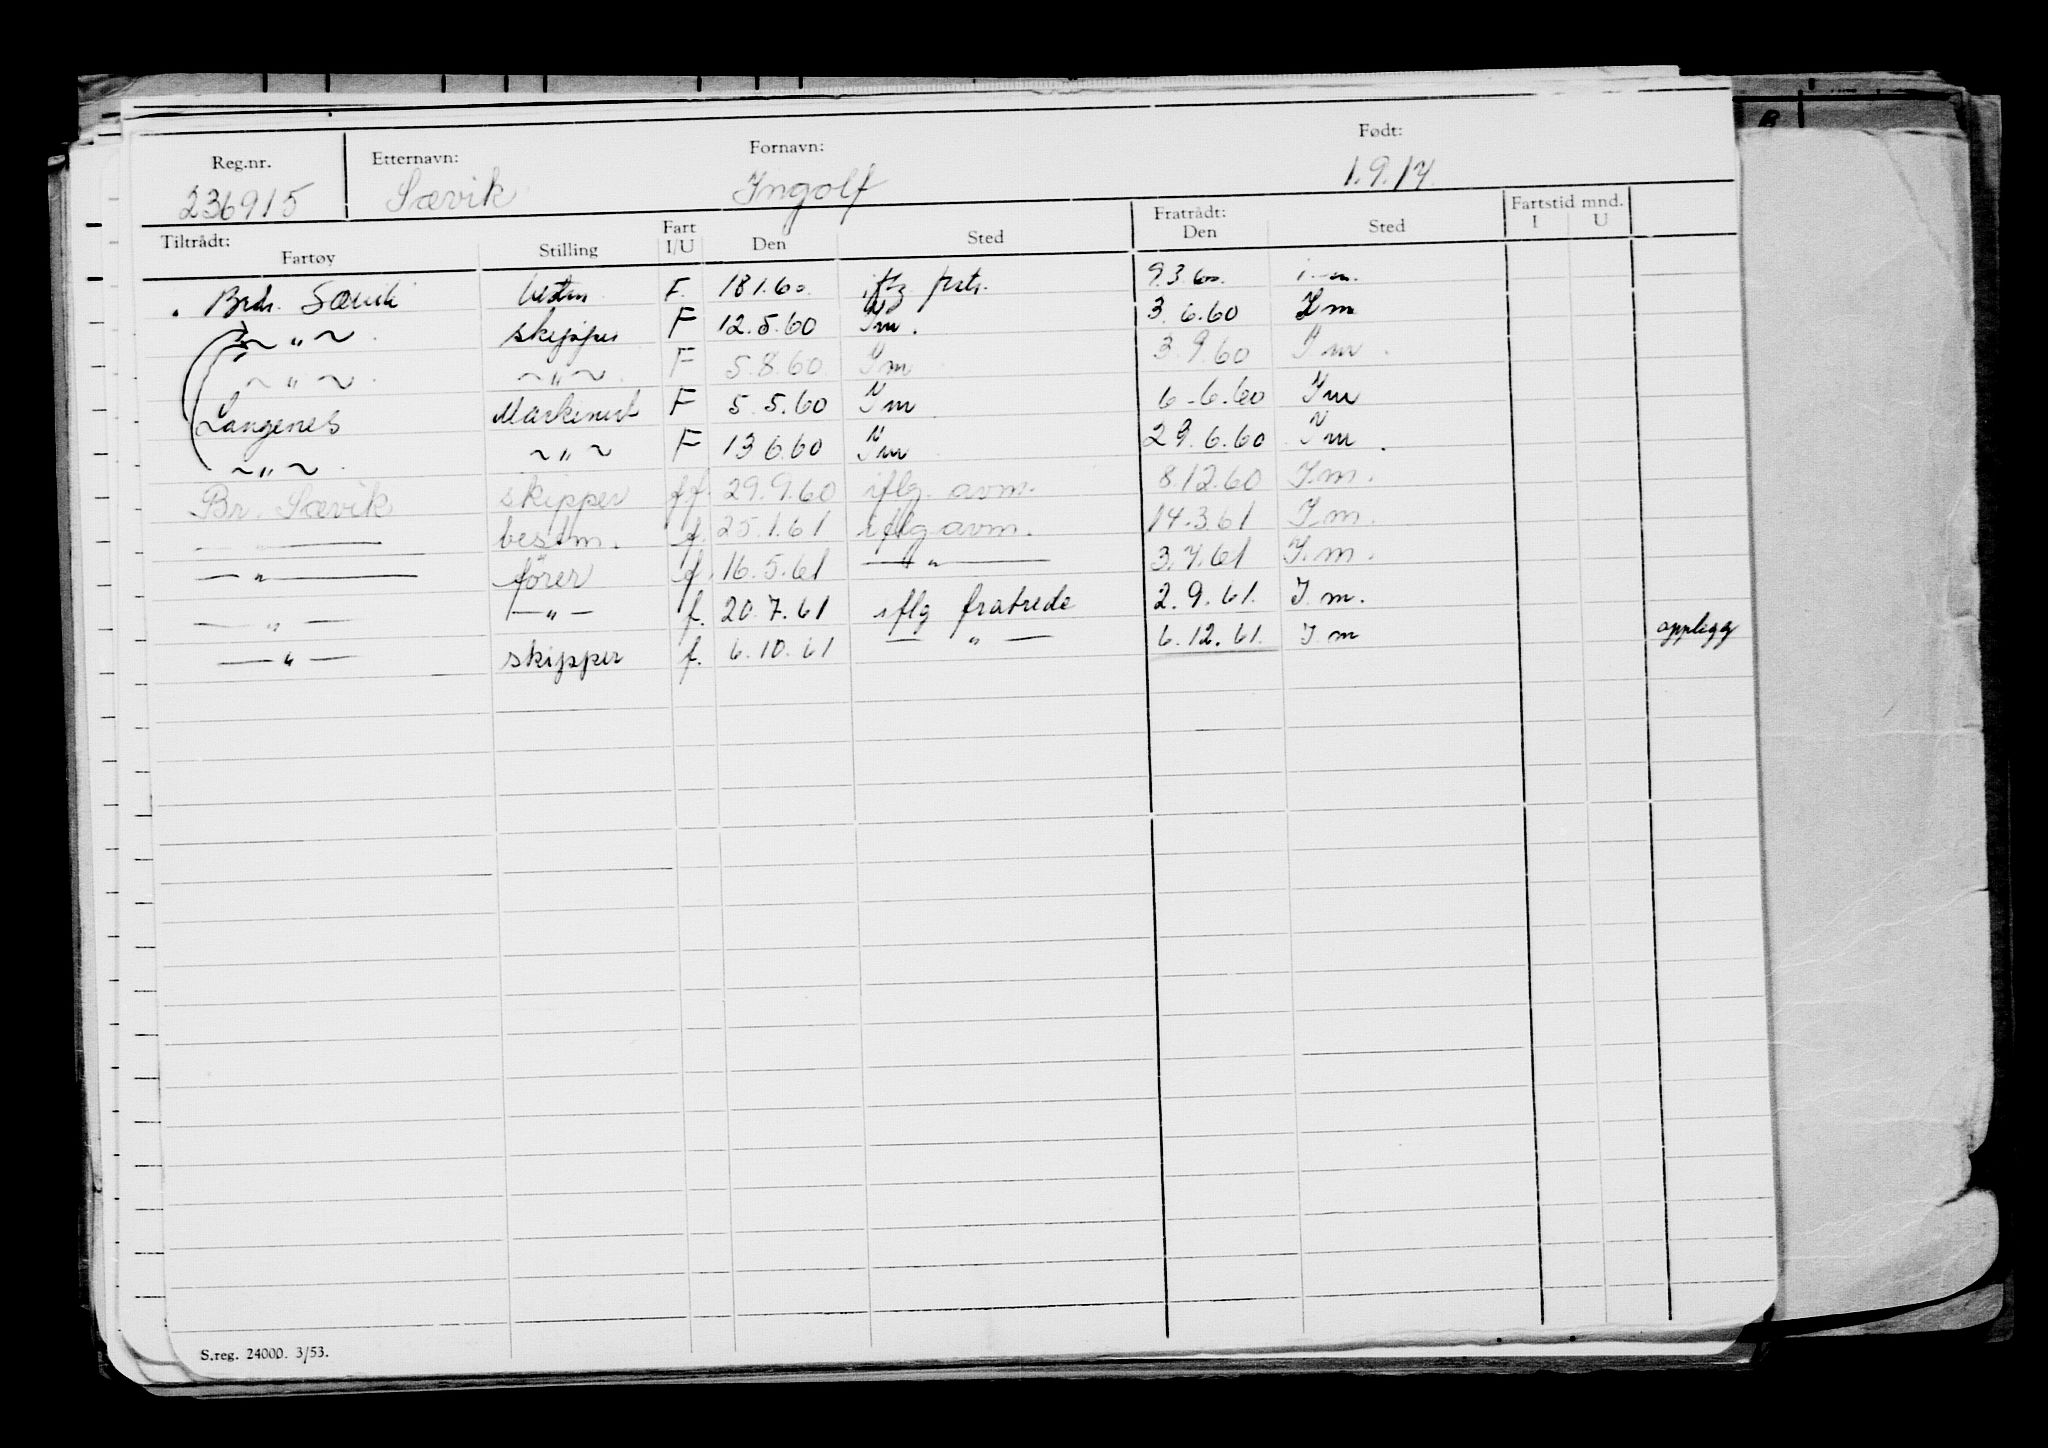 Reg.nr. Etternavn: Fornavn: Født:
236915 Sævik Ingolf 1.9.17
Tiltrådt: Fratrådt: Fartstid mnd.
Fartøy Stilling Fart I/U Den Sted Den Sted I U
Brdr. Sævik bestm F. 18 1.60. iflg. fratr. 9 3 60. i.m.
~ " ~ skipper F 12.5.60 I m. 3.6.60 I m
~ " ~ ~ " ~ F 5.8.60 I m 3.9.60 I m.
Langenes F 5.5.60 I m 6.6.60 I m
~ " ~ ~ " ~ F 13 6.60 I m 29.6.60 I m.
Br. Sævik skipper ff. 29.9.60 iflg. avm. 8.12.60 I.m.
— " — bestm. f. 25.1.61 iflg avm. 14.3.61 I.m.
— " — fører f. 16.5.61 — " — 3.7.61 I.m.
— " — — " — f. 20.7.61 iflg fratrede 2.9.61. I.m.
— " — skipper f. 6.10.61 — " — 6.12.61. I m opplegg
S.reg. 24000. 3/53.